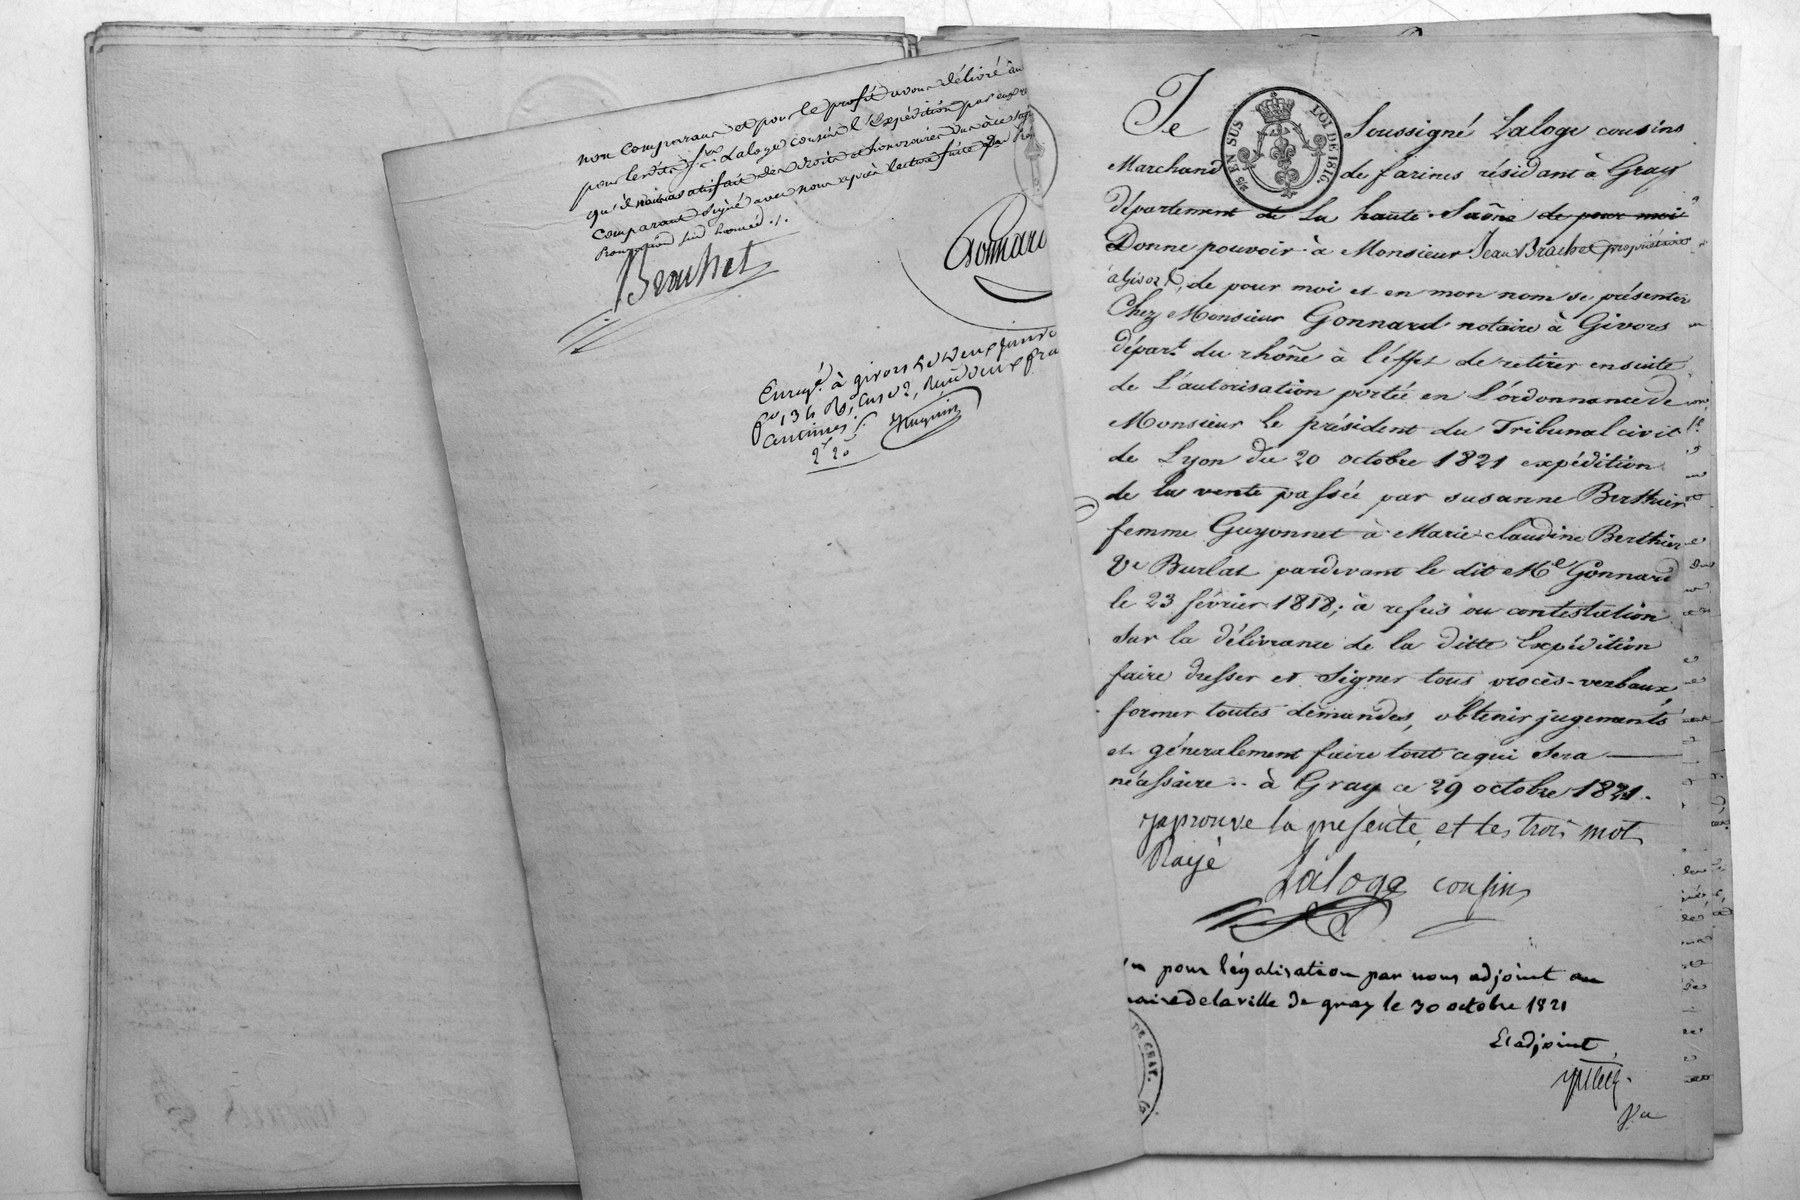 non comparans et pour le profit avons délivré au
pour lesdits Srs Laloge cousins l'Expédition par eux re
qu'il nous a satisfait des droits et honoraires dus à ce suj
comparant signé avec nous après lecture faite
Brachet
Gonnard
Enregé à givors le deux
fo 136 Ro, Case 2, Reçu deux fra
centimes
2f 20
Huguin
Je Soussigné Laloge cousins
25 EN SUS LOI DE 1816.
Marchand de farines résidant à Gray
département de La haute Saône de pour moi
Donne pouvoir à Monsieur Jean Brachet propriétaire
à Givors, de pour moi et en mon nom se présenter
Chez Monsieur Gonnard notaire à Givors
départ.t du rhône à l'éffet de retirer ensuite
de L'autorisation portée en L'ordonnance de
Monsieur Le président du Tribunal civil
de Lyon du 20 octobre 1821 expédition
de la vente passée par susanne Berthier
femme Guyonnet à Marie claudine Berthier
Ve Burlat pardevant le dit Me Gonnard
le 23 février 1818; à refus ou contestation
sur la délivrance de la ditte Expédition
faire dresser et signer tous procès-verbaux,
former toutes demandes, obtenir jugements
et géneralement faire tout ce qui sera
nécessaire .. à Gray ce 29 octobre 1821.
japrouve la presente, et les trois mot
Rayé
Laloge cousins
pour légalisation par nous adjoint au
maire de la ville de gray le 30 octobre 1821
L'adjoint
DE GRAY.